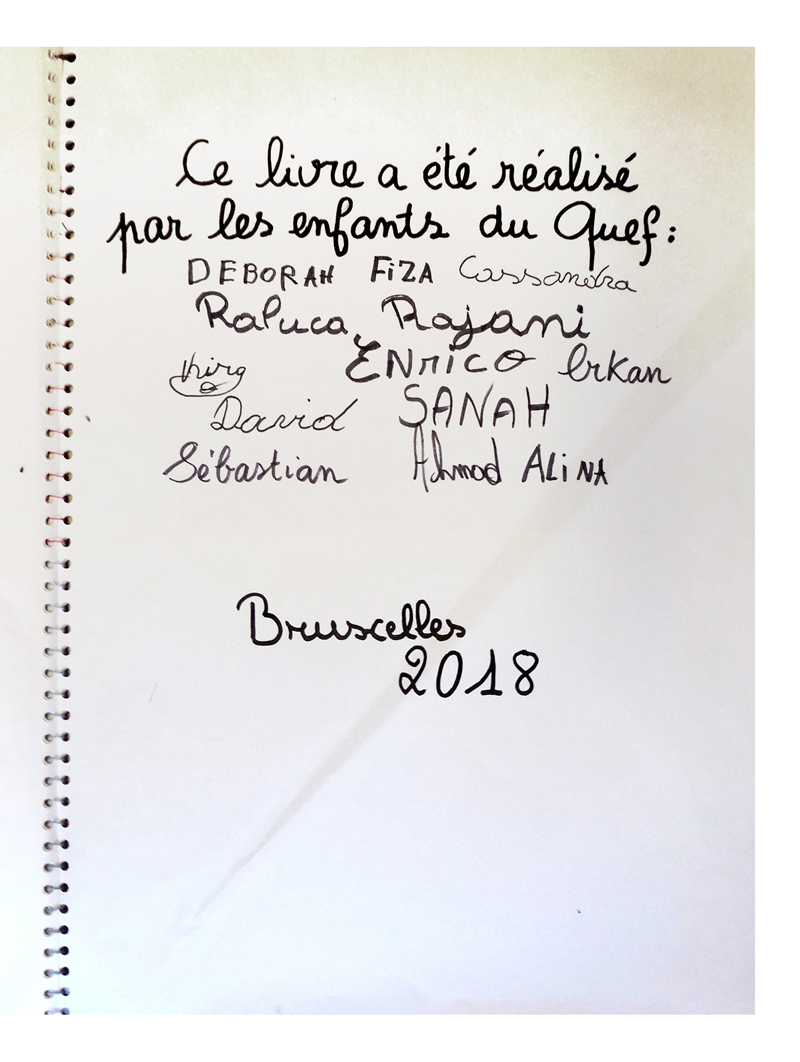 Ce livre a été réalisé
par les enfants du Quef :
DEBORAH FiZA Cassandra
Raluca Rajani
ENriCO Erkan
David SANAH
Sébastian Ahmad ALiNA
Bruxelles
2018